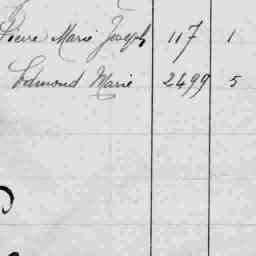 Pierre Marie Joseph 117 1
Edmond Marie 2499 5